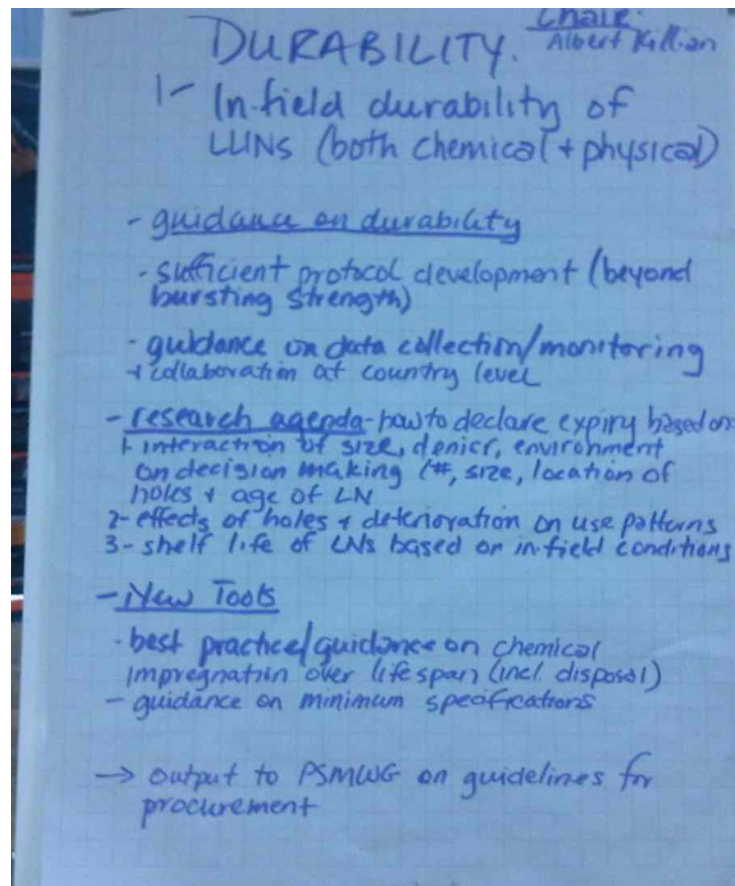 Chair:
DURABILITY. Albert Killian
1- In-field durability of
LLINs (both chemical + physical)
- guidance on durability
- sufficient protocol development (beyond
bursting strength)
- guidance on data collection/monitoring
+ collaboration at country level
- research agenda - how to declare expiry based on:
1 interaction of size, denier, environment
on decision making (#, size, location of
holes + age of LN
2- effects of holes + deterioration on use patterns
3- shelf life of LNs based on in field conditions
- New Tools
- best practice/guidance on chemical
impregnation over lifespan (incl. disposal)
- guidance on minimum specifications
→ output to PSMWG on guidelines for
procurement